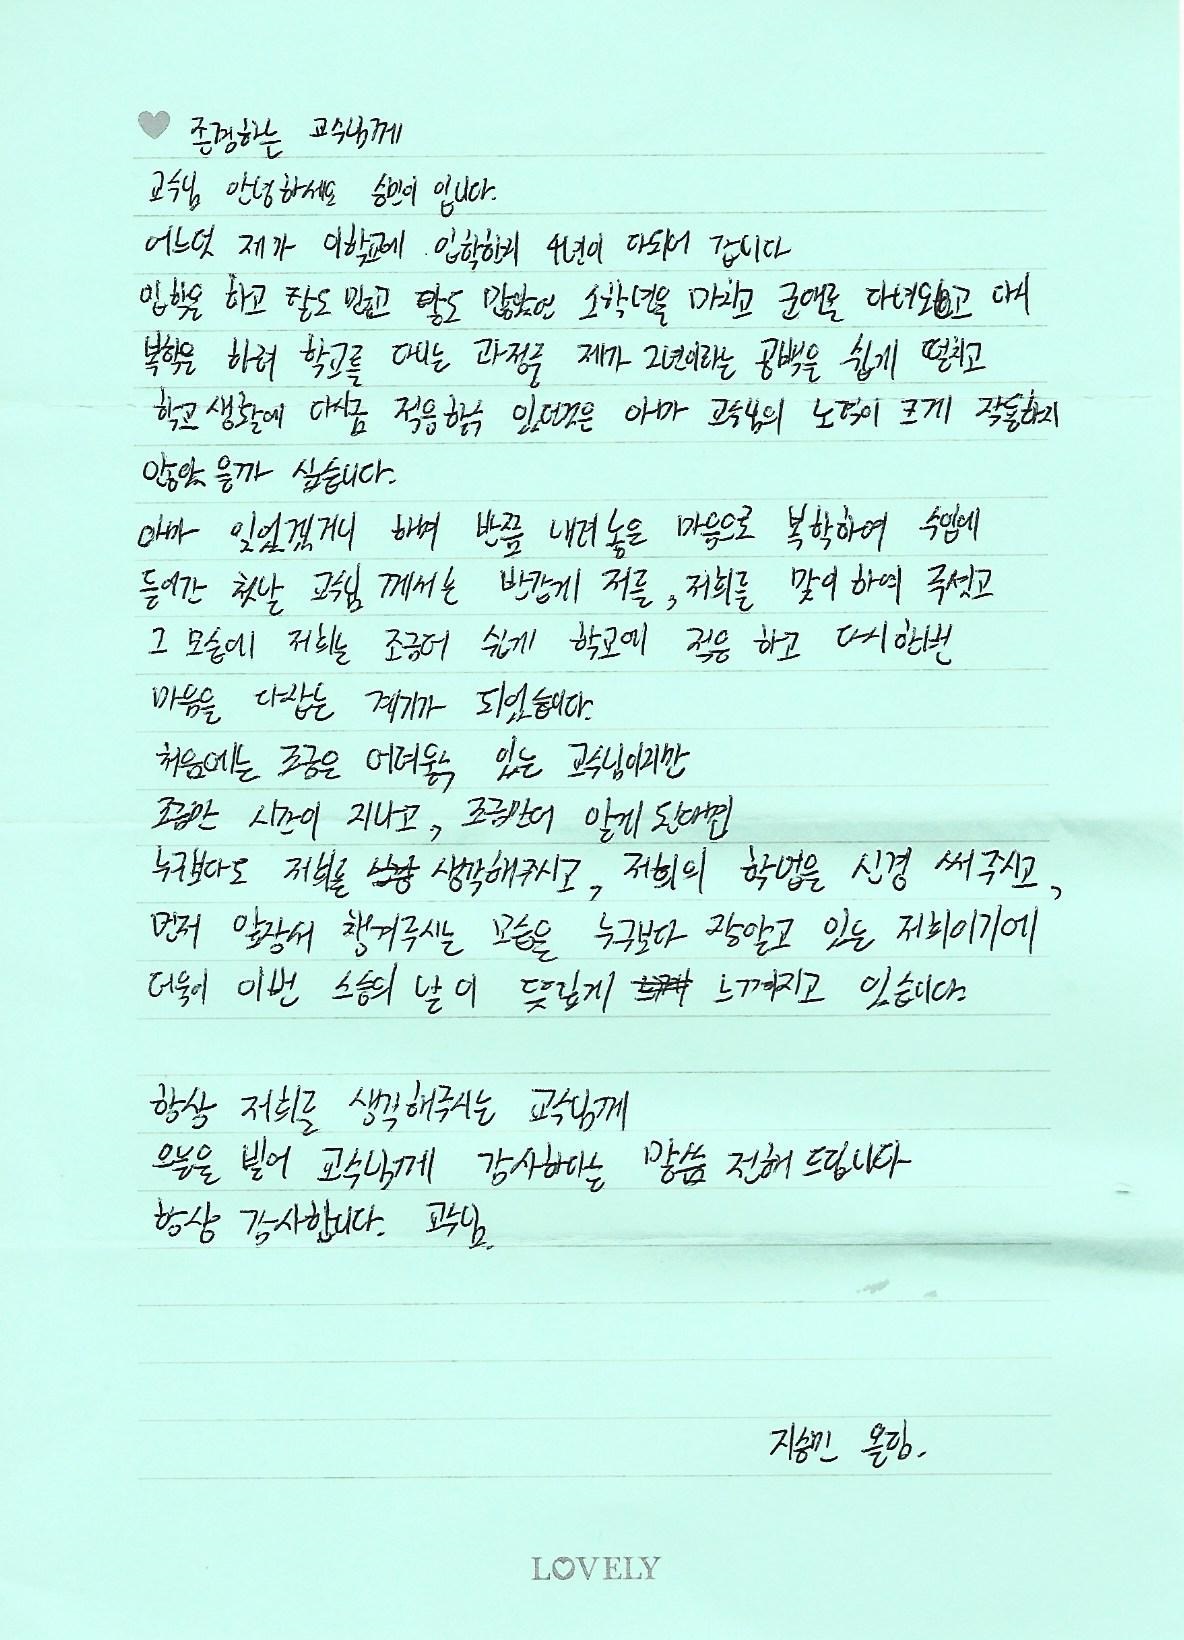 존경하는 교수님께
교수님 안녕하세요 승민이 입니다.
어느덧 제가 이학교에 입학한지 4년이 다되어 갑니다
입학을 하고 탈도 많고 말도 많았던 소학년을 마치고 군대를 다녀오고 다시
복학을 하려 학교를 다니는 과정들 제가 2년이라는 공백을 쉽게 떨치고
학교생활에 다시금 적응할수 있던것은 아마 교수님의 노력이 크게 작동하지
않았을까 싶습니다.
아마 잊었겠거니 하며 반쯤 내려놓은 마음으로 복학하여 수업에
들어간 첫날 교수님 께서는 반갑게 저를, 저희를 맞이 하여 주셨고
그 모습에 저희는 조금더 쉽게 학교에 적응 하고 다시한번
마음을 다잡는 계기가 되었습니다.
처음에는 조금은 어려울수 있는 교수님이지만
조금만 시간이 지나고, 조금만더 알게 된다면
누구보다도 저희를 생각해주시고, 저희의 학업을 신경 써주시고,
먼저 앞장서 챙겨주시는 모습을 누구보다 잘알고 있는 저희이기에
더욱이 이번 스승의 날이 뜻깊게 느껴지고 있습니다.
항상 저희를 생각해주시는 교수님께
오늘을 빌어 교수님께 감사하다는 말씀 전해 드립니다
항상 감사합니다. 교수님.
지승민 올림.
LOVELY